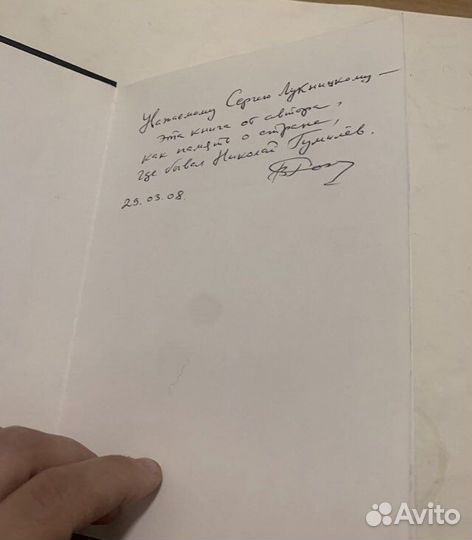 Уважаемому Сергею Лукницкому —
эта книга от автора,
как память о стране,
где бывал Николай Гумилёв.
29.03.08.
Avito